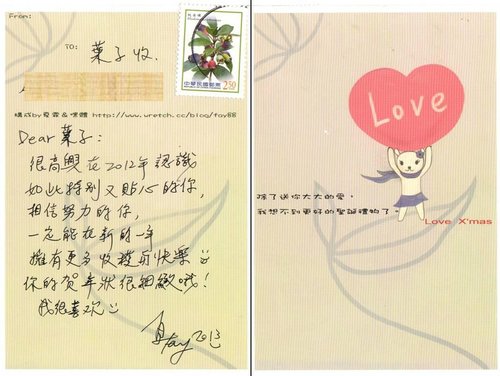 From:
TO: 葉子 收.
中華民國郵票
2.50
構成by夏霏&咪體 http://www.wretch.cc/blog/fay88
Dear 葉子:
很高興在2012年認識
如此特別又貼心的你,
相信努力的你,
一定能在新的一年
擁有更多收穫與快樂
你的賀年狀很細緻哦!
我很喜欢
夏Fay 2013
Love
除了送你大大的愛，
我想不到更好的聖誕禮物了。
Love X'mas